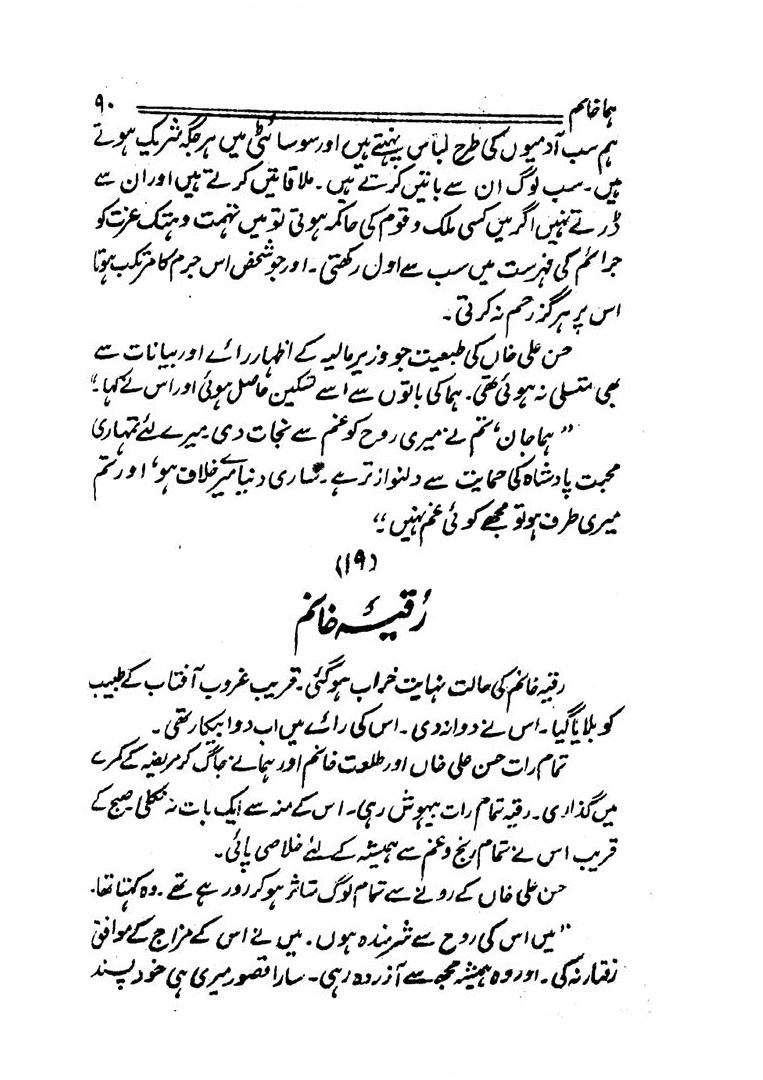 ہما خانم ۹۰
ہم سب آدمیوں کی طرح لباس پہنتے ہیں اور سوسائٹی میں ہر جگہ شریک ہوتے
ہیں۔ سب لوگ ان سے باتیں کرتے ہیں۔ ملاقاتیں کرتے ہیں اور ان سے
ڈرتے نہیں اگر میں کسی ملک و قوم کی حاکم ہوتی تو میں تہمت و ہتک عزت کو
جرائم کی فہرست میں سب سے اول رکھتی۔ اور جو شخص اس جرم کا مرتکب ہوتا
اس پر ہرگز رحم نہ کرتی۔
حسن علی خاں کی طبیعت جو وزیر مالیہ کے اظہار رائے اور بیانات سے
بھی متسلی نہ ہوئی تھی۔ ہما کی باتوں سے اسے تسکین حاصل ہوئی اور اس نے کہا۔"
"ہما جان، تم نے میری روح کو غم سے نجات دی۔ میرے لئے تمہاری
محبت پادشاہ کی حمایت سے دلنواز تر ہے۔ ساری دنیا میرے خلاف ہو، اور تم
میری طرف ہو تو مجھے کوئی غم نہیں۔"
(۱۹)
رُقیہ خانم
رقیہ خانم کی حالت نہایت خراب ہو گئی۔ قریب غروب آفتاب کے طبیب
کو بلایا گیا۔ اس نے دوا نہ دی۔ اس کی رائے میں اب دوا بیکار تھی۔
تمام رات حسن علی خاں اور طلعت خانم اور ہما نے جاگ کر مریضہ کے کمرے
میں گذاری۔ رقیہ تمام رات بیہوش رہی۔ اس کے منہ سے ایک بات نہ نکلی صبح کے
قریب اس نے تمام رنج و غم سے ہمیشہ کے لئے خلاصی پائی۔
حسن علی خاں کے رونے سے تمام لوگ متاثر ہو کر رو رہے تھے۔ وہ کہتا تھا۔
"میں اس کی روح سے شرمندہ ہوں۔ میں نے اس کے مزاج کے موافق
رفتار نہ کی۔ اور وہ ہمیشہ مجھ سے آزردہ رہی۔ سارا قصور میری ہی خود پسند